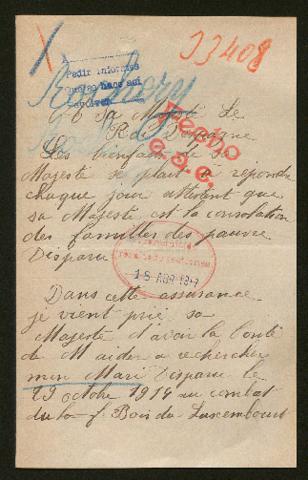 33408
Pedir informes
que se hace aqui
A Sa Majesté Le
Roi D'Espagne
Les bienfaits que Sa
Majesté se plait à répondre
chaque jour attestent que
sa Majesté est la consolation
des familles des pauvre
Disparu
15 AGO 1917
Dans cette assurance
je vient prié sa
Majesté d'avoir la bonté
de M aider a rechercher
mon Mari Disparu le
29 octobre 1914 au combat
du Bois du Luxembourg